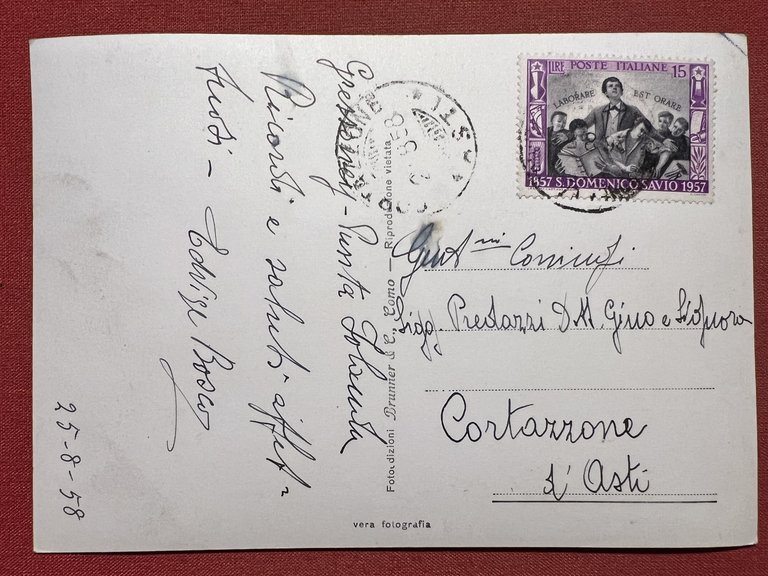 Gressoney - Punta Jolanda
Ricordi e saluti affet-
tuosi - Edvige Bosco
25-8-58
Fotoedizioni Brunner & C., Como — Riproduzione vietata
vera fotografia
LIRE POSTE ITALIANE 15
LABORARE EST ORARE
1857 S. DOMENICO SAVIO 1957
ASTI
Gent.mi Coniugi
Sigg. Predazzi D.M. Gino e Signora
Cortazzone
d'Asti